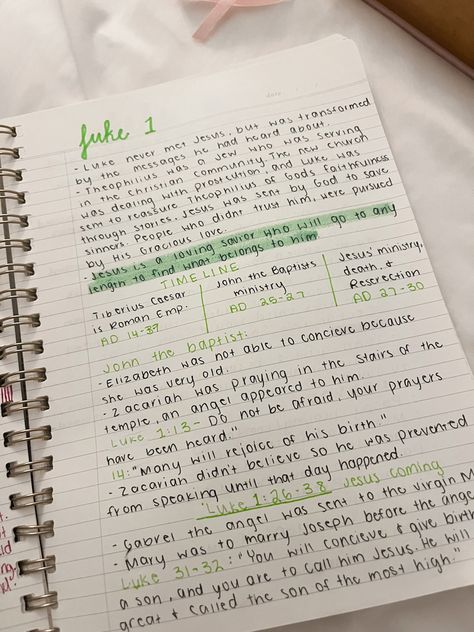 Luke 1
- Luke never met Jesus, but was transformed
by the messages he had heard about.
- Theophilius was a Jew who was serving
in the Christian community. The new church
was dealing with prosecution, and Luke was
sent to reassure Theophilius of Gods faithfulness
through stories. Jesus was sent by God to save
sinners. People who didnt trust him, were pursued
by His Gracious love.
- Jesus is a loving savior who will go to any
length to find what belongs to him.
TIMELINE
Tiberius Caesar
is Roman Emp.
AD 14-37
John the Baptists
ministry
AD 25-27
Jesus' ministry,
death, &
Resrection
AD 27-30
John the baptist:
- Elizabeth was not able to concieve because
she was very old.
- Zacariah was praying in the stairs of the
temple, an angel appeared to him.
Luke 1:13- Do not be afraid, your prayers
have been heard."
14: "Many will rejoice of his birth."
- Zacariah didn't believe so he was prevented
from speaking until that day happened.
Luke 1:26-38 Jesus coming
- Gabrel the angel was sent to the virgin M
- Mary was to marry Joseph before the ang
Luke 31-32: "You will concieve & give birth
a son, and you are to call him Jesus. He will
great & called the son of the most high."